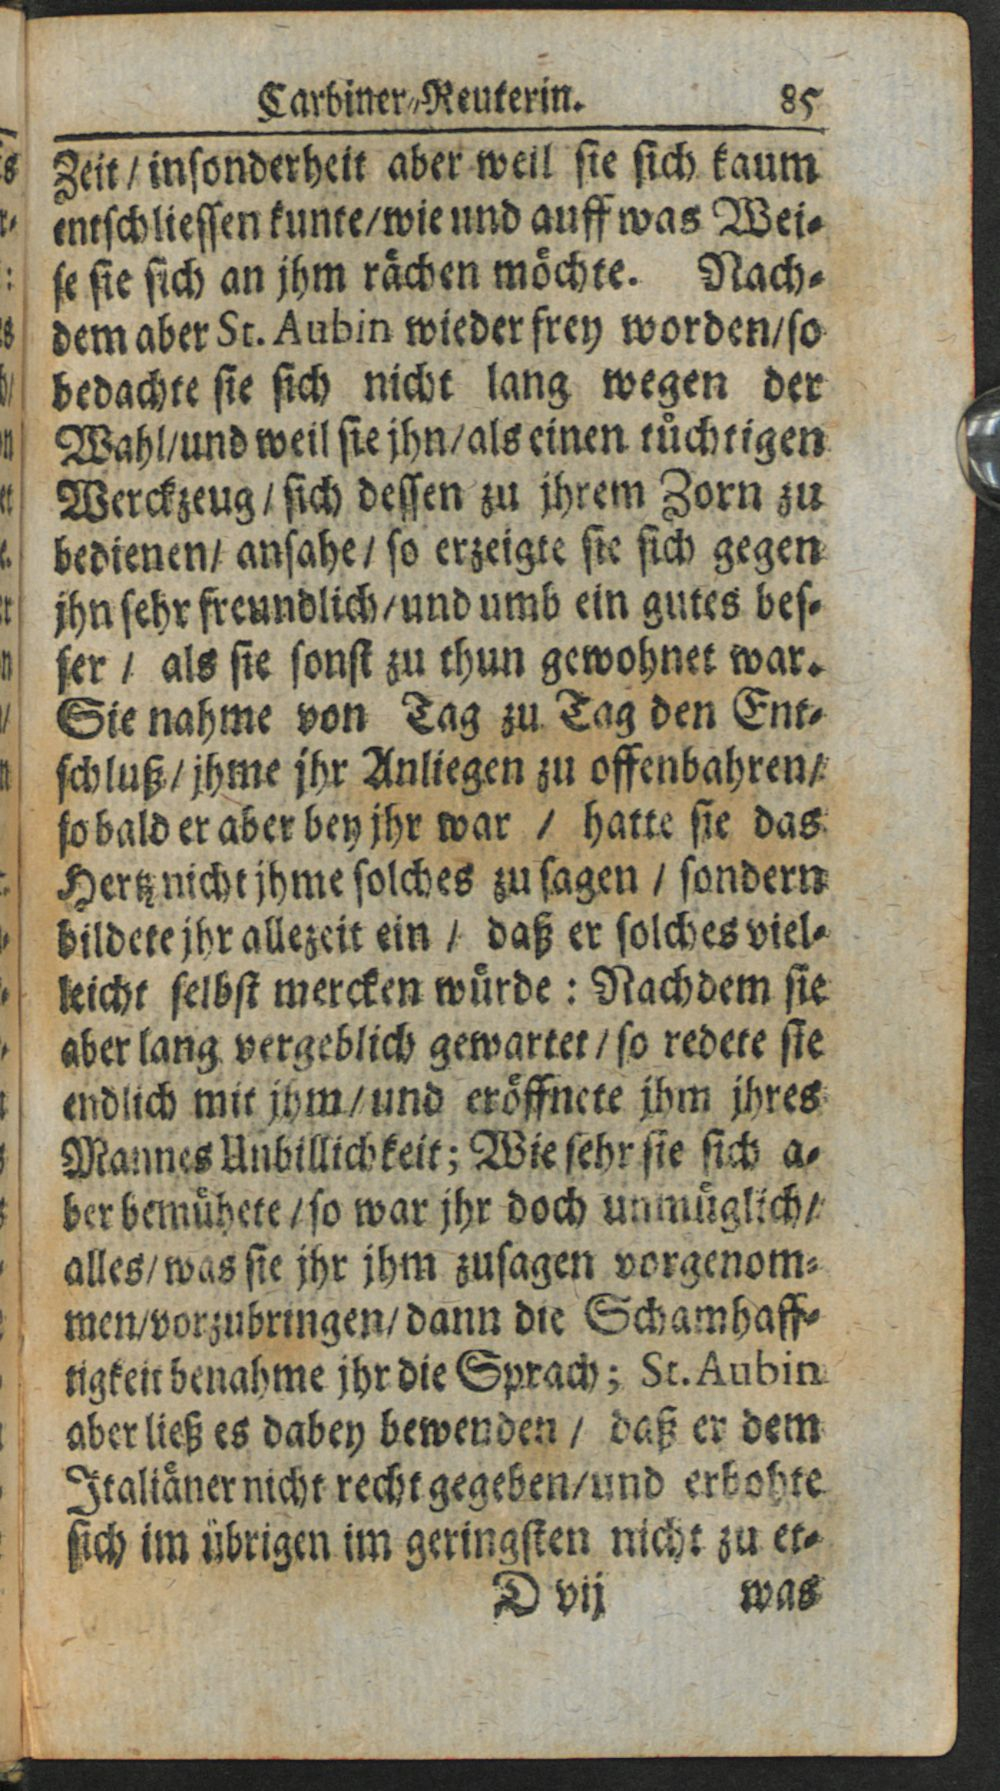 Carbiner-Reuterin. 85
Zeit / insonderheit aber weil sie sich kaum
entschliessen kunte/wie und auff was Wei-
se sie sich an jhm rächen möchte. Nach-
dem aber St. Aubin wieder frey worden/so
bedachte sie sich nicht lang wegen der
Wahl/und weil sie jhn/als einen tüchtigen
Werckzeug / sich dessen zu jhrem Zorn zu
bedienen/ ansahe / so erzeigte sie sich gegen
jhn sehr freundlich/und umb ein gutes bes-
ser / als sie sonst zu thun gewohnet war.
Sie nahme von Tag zu Tag den Ent-
schluß / jhme jhr Anliegen zu offenbahren/
so bald er aber bey jhr war / hatte sie das
Hertz nicht jhme solches zu sagen / sondern
bildete jhr allezeit ein / daß er solches viel-
leicht selbst mercken würde : Nachdem sie
aber lang vergeblich gewartet / so redete sie
endlich mit jhm / und eröffnete jhm jhres
Mannes Unbillichkeit; Wie sehr sie sich a-
ber bemühete / so war jhr doch unmüglich/
alles/was sie jhr jhm zusagen vorgenom-
men/vorzubringen/ dann die Schamhaff-
tigkeit benahme jhr die Sprach; St. Aubin
aber ließ es dabey bewenden / daß er dem
Italiäner nicht recht gegeben/und erbohte
sich im übrigen im geringsten nicht zu et-
D vij was